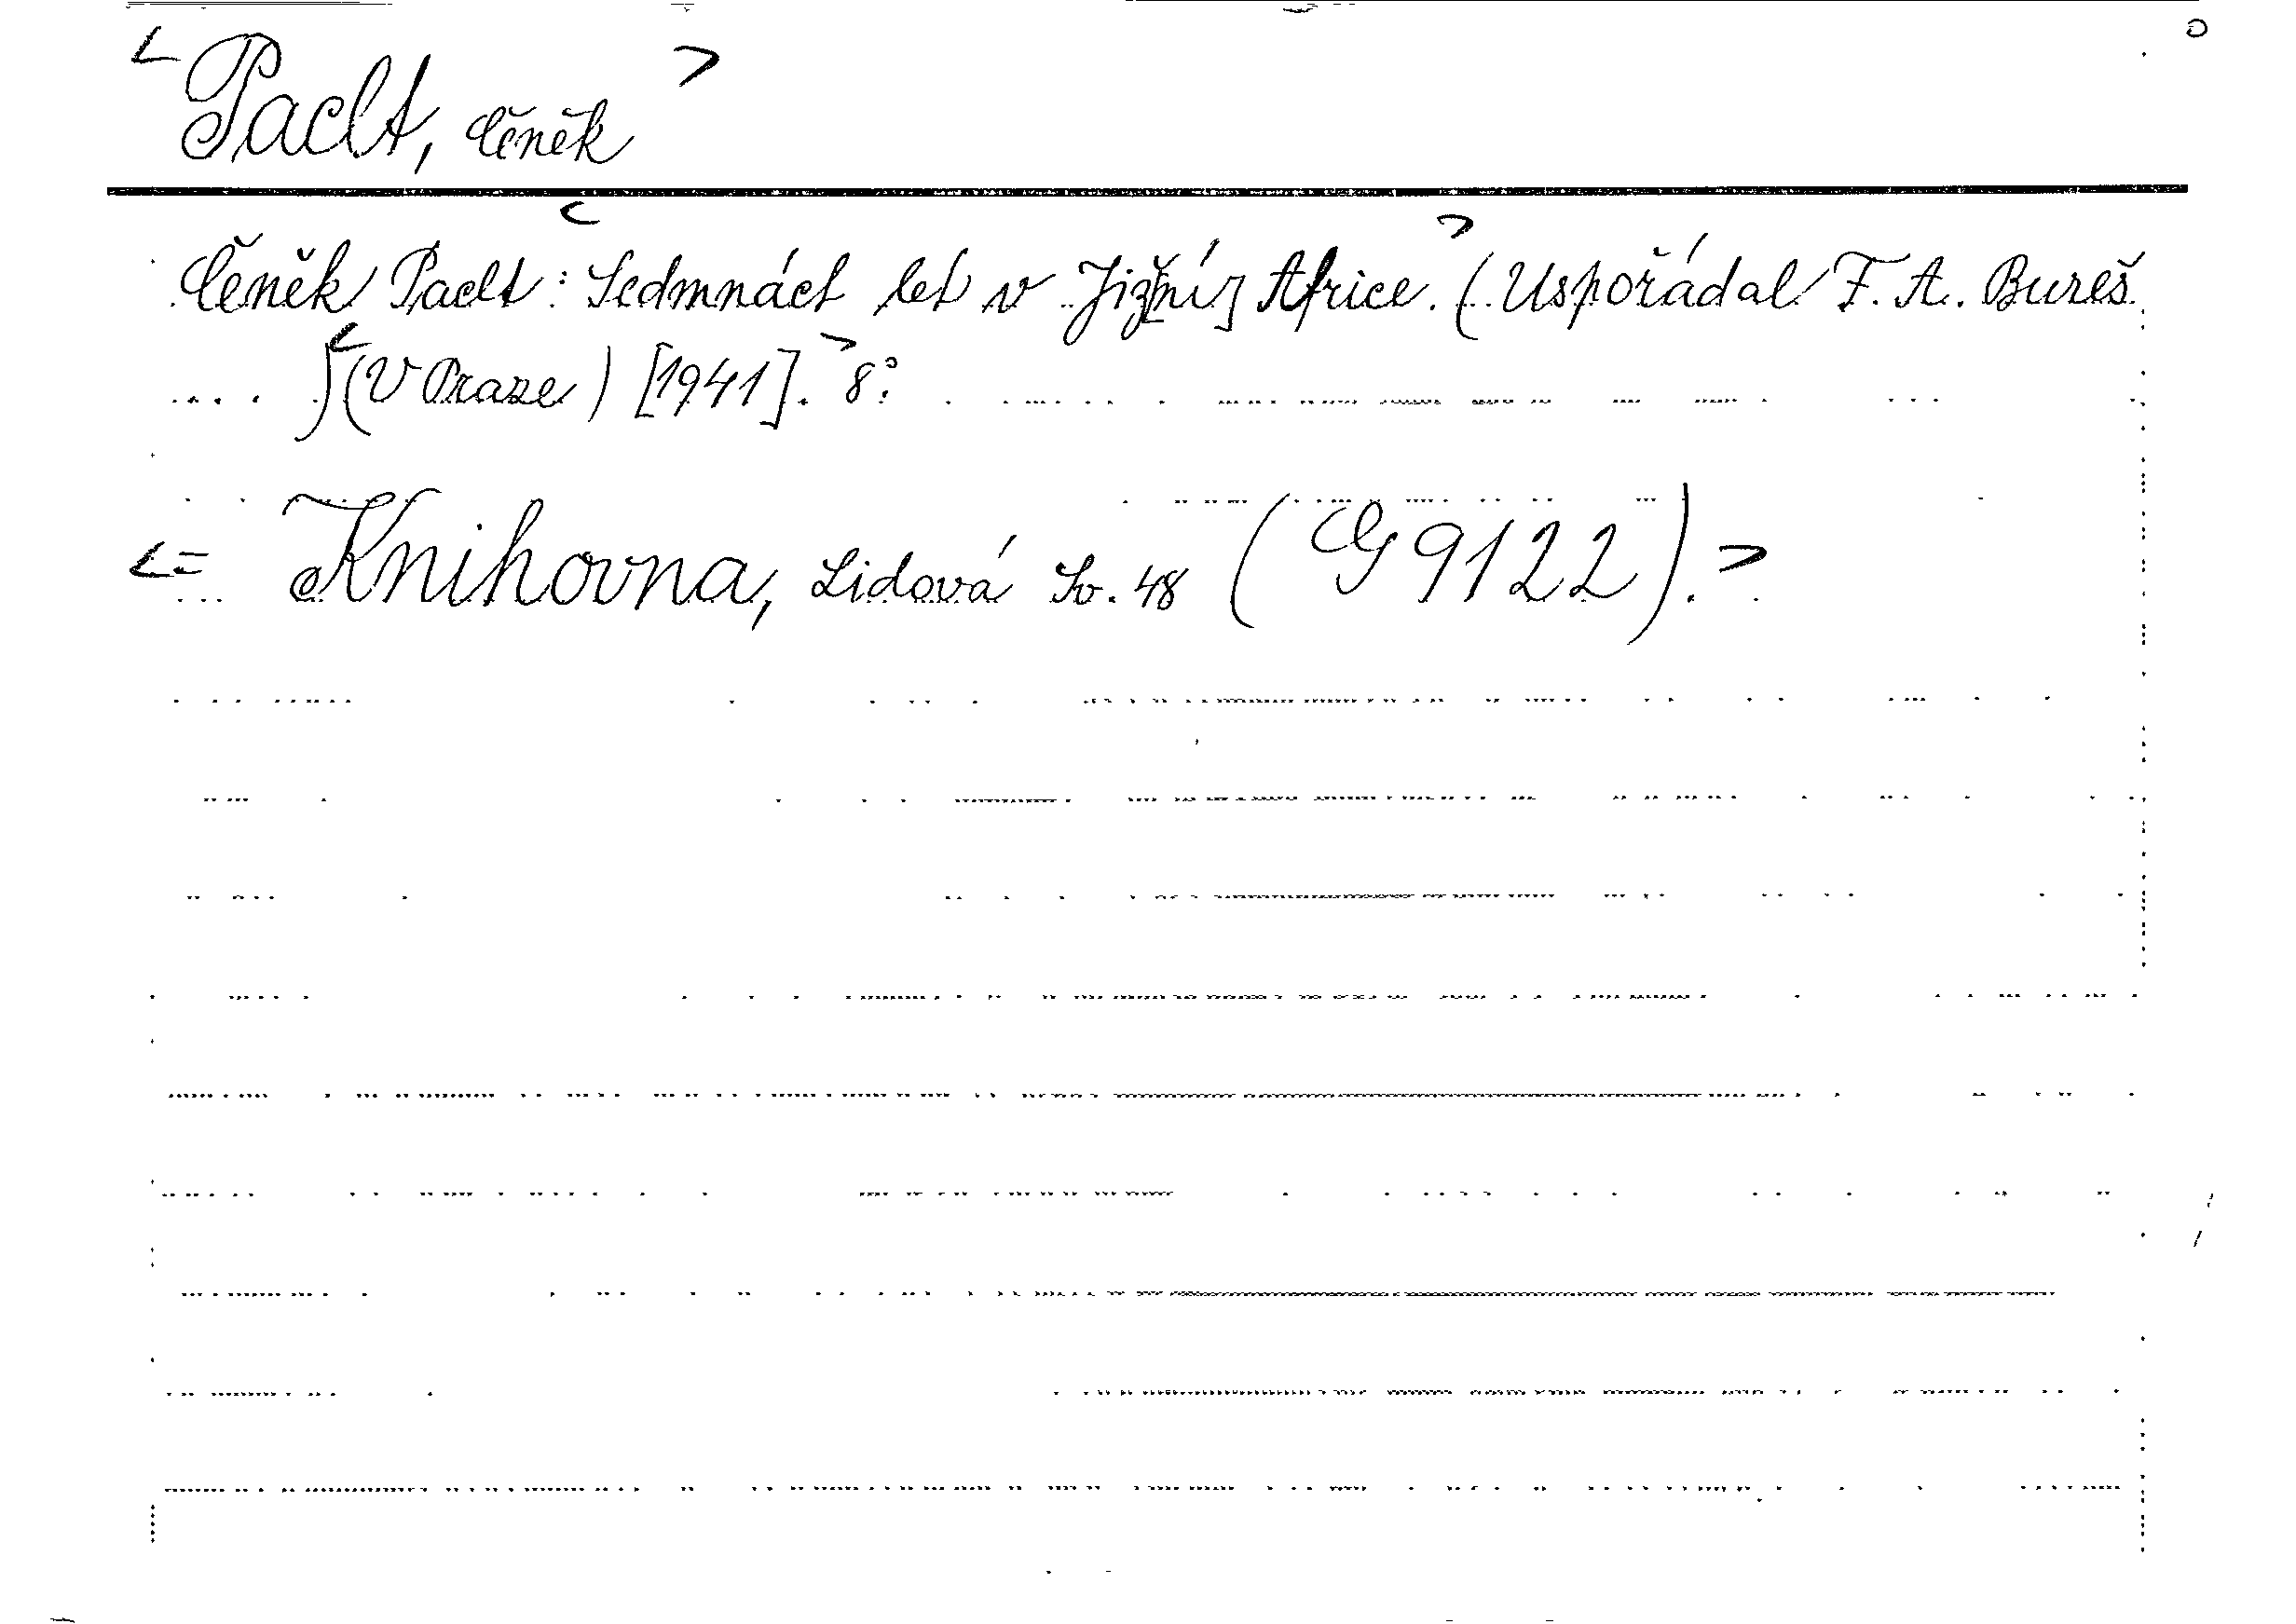 <Paclt, Čeněk>
Čeněk Paclt: <Sedmnáct let v Již[ní] Africe.> (Uspořádal F. A. Bureš
)<(V Praze) [1941].> 8°.
<= Knihovna, Lidová Sv. 48 (G 9122).>